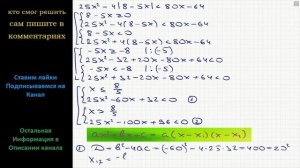 кто смог решить
сам пишите в
комментариях
Ставим лайки
Подписываемся на
Канал
Остальная
Информация в
Описании канала
25x² - 4|8-5x| < 80x-64
8-5x ≥ 0
25x² - 4(8-5x) < 80x-64
8-5x < 0
25x² + 4(8-5x) < 80x-64
-5x ≥ -8 | :(-5)
25x² - 32 + 20x - 80x + 64 < 0
-5x < -8 | :(-5)
25x² + 32 - 20x - 80x + 64 < 0
x ≤ 8/5
25x² - 60x + 32 < 0 ①
x > 8/5
25x² - 100x + 96 < 0 ②
ax² + bx + c = a(x-x₁)(x-x₂)
① D = b² - 4ac = (-60)² - 4·25·32 = 400 = 20²
x₁,₂ = -b